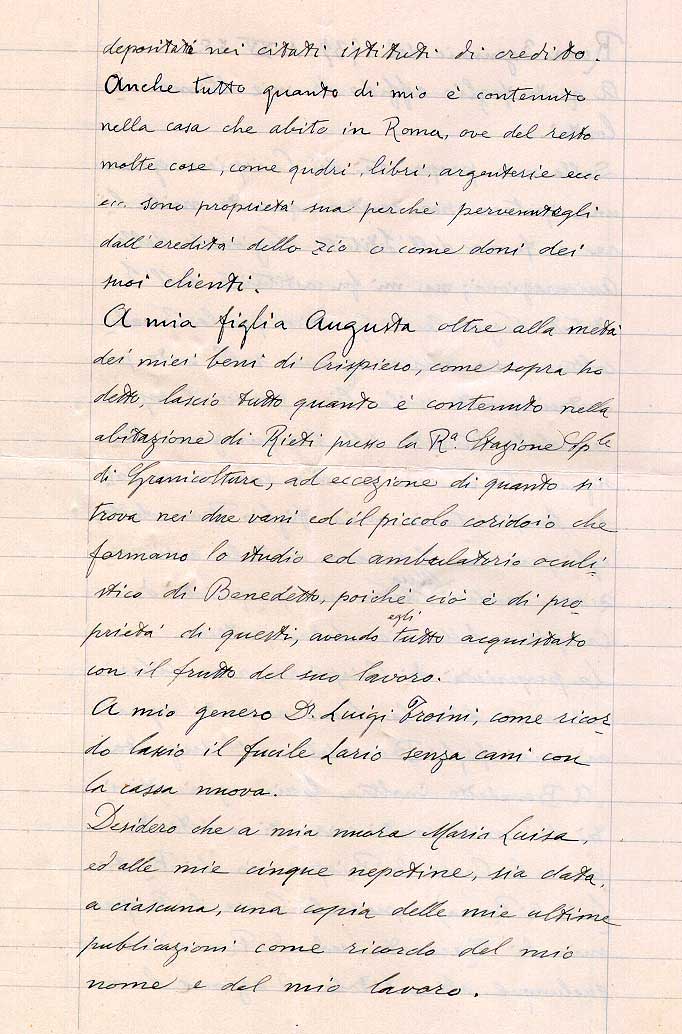 depositati nei citati istituti di credito.
Anche tutto quanto di mio è contenuto
nella casa che abito in Roma, ove del resto
molte cose, come qudri, libri, argenterie ecc
ecc. sono proprietá sua perchè pervenutegli
dall'ereditá dello zio o come doni dei
suoi clienti.
A mia figlia Augusta oltre alla metá
dei miei beni di Crispiero, come sopra ho
detto, lascio tutto quanto è contenuto nella
abitazione di Rieti presso la Rª. Stazione Sple
di Granicoltura, ad eccezione di quanto si
trova nei due vani ed il piccolo coridoio che
formano lo studio ed ambulatorio oculi-
stico di Benedetto, poiché ció è di pro-
prietá di questi, avendo egli tutto acquistato
con il frutto del suo lavoro.
A mio genero Dr. Luigi Troini, come ricor-
do lascio il fucile Lario senza cani con
la cassa nuova.
Desidero che a mia nuora Maria Luisa,
ed alle mie cinque nepotine, sia data,
a ciascuna, una copia delle mie ultime
publicazioni come ricordo del mio
nome e del mio lavoro.